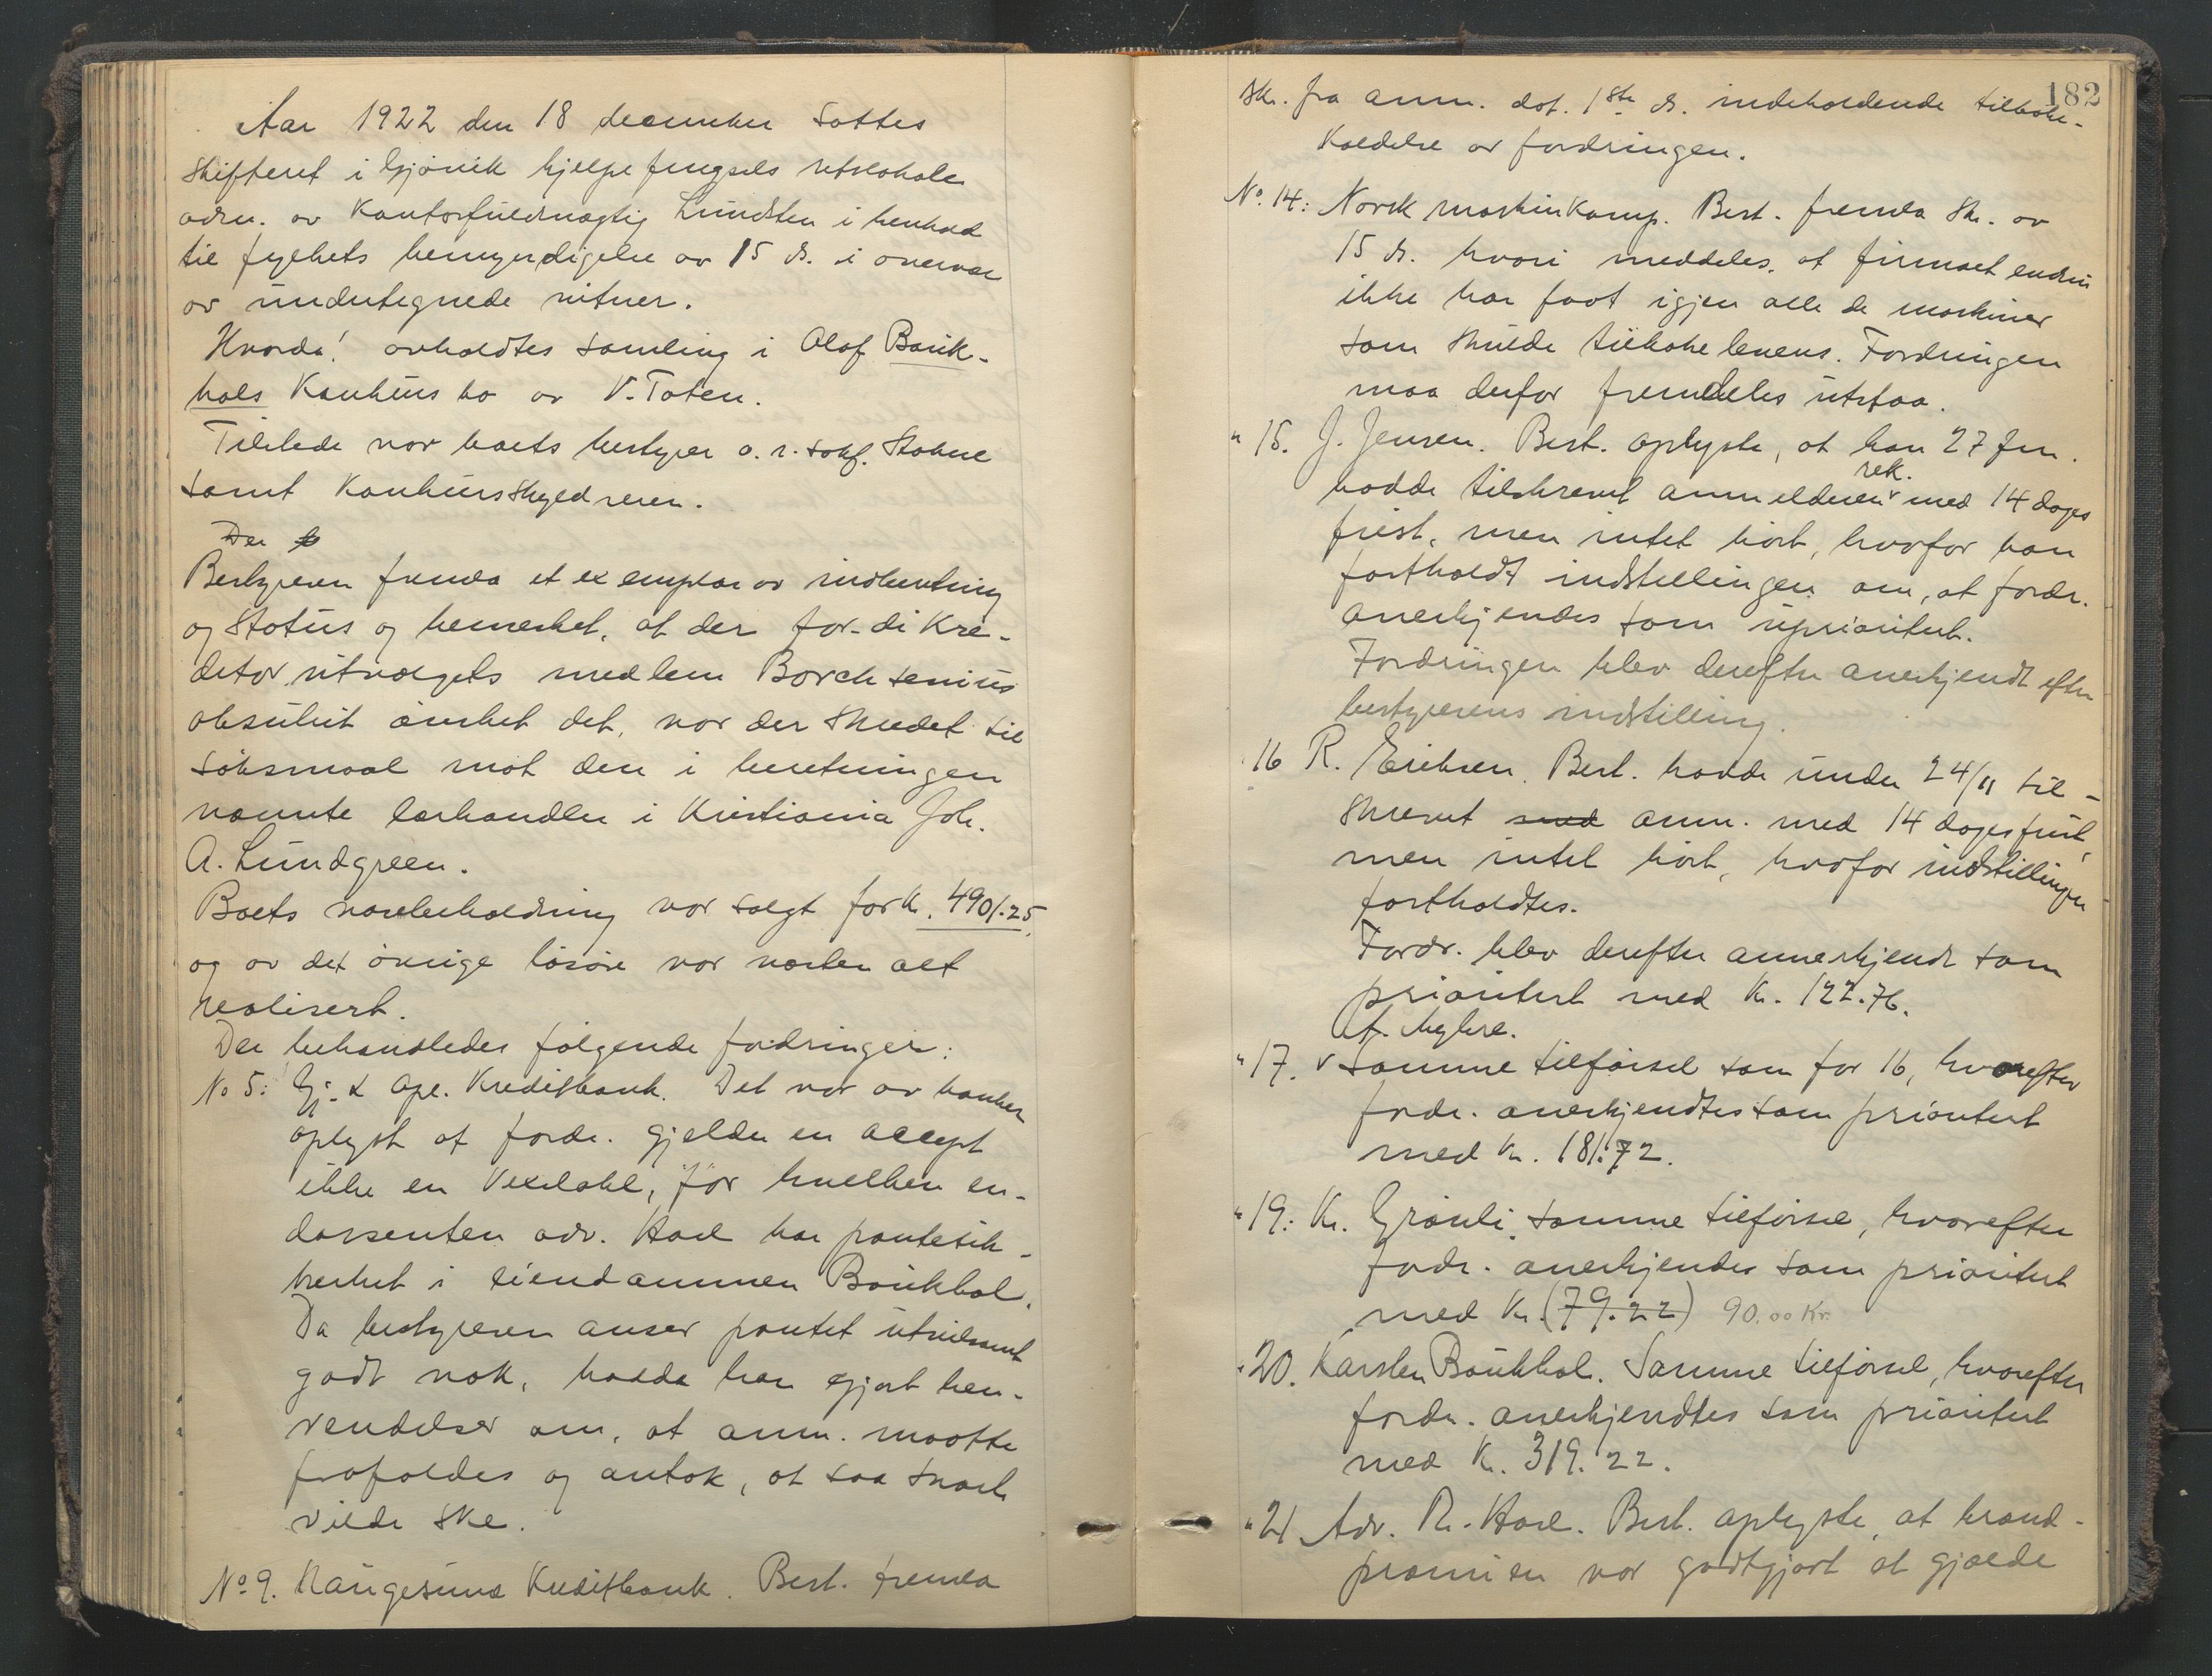 Aar 1922 den 18 december sattes
Skifteret i Gjøvik hjelpefengsels retslokale
adm. av Kontorfuldmægtig Lundsten i henhold
til fogdets bemyndigelse av 15 ds. i overvær
av undertegnede vitner.
Hvorda! avholdtes samling i Olaf Bauk-
hols Konkurs bo av V. Toten.
Tilstede var boets bestyrer o. r. sakf. Stabell
samt Konkursskyldneren.
Der
Bestyreren fremla et exemplar av indberetning
og Status og bemerket, at der for-di Kre-
ditorutvalgets medlem Borchsenius
absolut ønsket det, var der skredet til
søksmaal mot den i beretningen
nævnte lærhandler i Kristiania Joh.
A. Lundgreen.
Boets varebeholdning var solgt for Kr. 4901.25
og av det øvrige løsøre var næsten alt
realisert.
Der behandledes følgende fordringer:
No 5: Gj. & Opl. Kreditbank. Det var av banken
oplyst at fordr. gjelder en accept
ikke en Vexelobl., for hvilken en-
dossenten adv. Hoel har pantesik-
kerhet i eiendommen Baukhol.
Da bestyreren anser pantet utvilsomt
godt nok, hadde han gjort hen-
vendelser om, at anm. maatte
frafaldes og antok, at saa snart
vilde ske.
No 9. Haugesund Kreditbank. Best. fremla
182
Skr. fra anm. dat. 1ste ds. indeholdende tilbake-
Kaldelse av fordringen.
No. 14: Norsk maskinkomp. Best. fremla Skr. av
15 ds. hvori meddeles, at firmaet endnu
ikke har faat igjen alle de maskiner
som skulde tilbakeleveres. Fordringen
maa derfor fremdeles utstaa.
" 15. J. Jensen. Best. oplyste, at han 27 f.m.
rek.
hadde tilskrevet anmelderen v med 14 dages
frist, men intet hørt, hvorfor han
fastholdt indstillingen om, at fordr.
anerkjendes som uprioritert.
Fordringen blev derefter anerkjendt efter
bestyrerens indstilling.
" 16 R. Eriksen. Best. hadde under 24/11 til-
skrevet med anm. med 14 dages frist,
men intet hørt, hvorfor indstillingen
fastholdtes.
Fordr. blev derefter annerkjendt som
prioritert med Kr. 122.76.
Af. Myhre.
" 17. v Samme tilførsel som for 16, hvorefter
fordr. anerkjendtes som prioritert
med Kr. 181.72.
" 19: Kr. Grønli, samme tilførsel, hvorefter
fordr. anerkjendes som prioritert
med Kr. (79.22) 90.00 Kr.
" 20. Karsten Baukhol. Samme tilførsel, hvorefter
fordr. anerkjendtes som prioritert
med Kr. 319.22.
" 21 Adv. Hoel. Best. oplyste, at brand-
præmien var godtgjort at gjælde